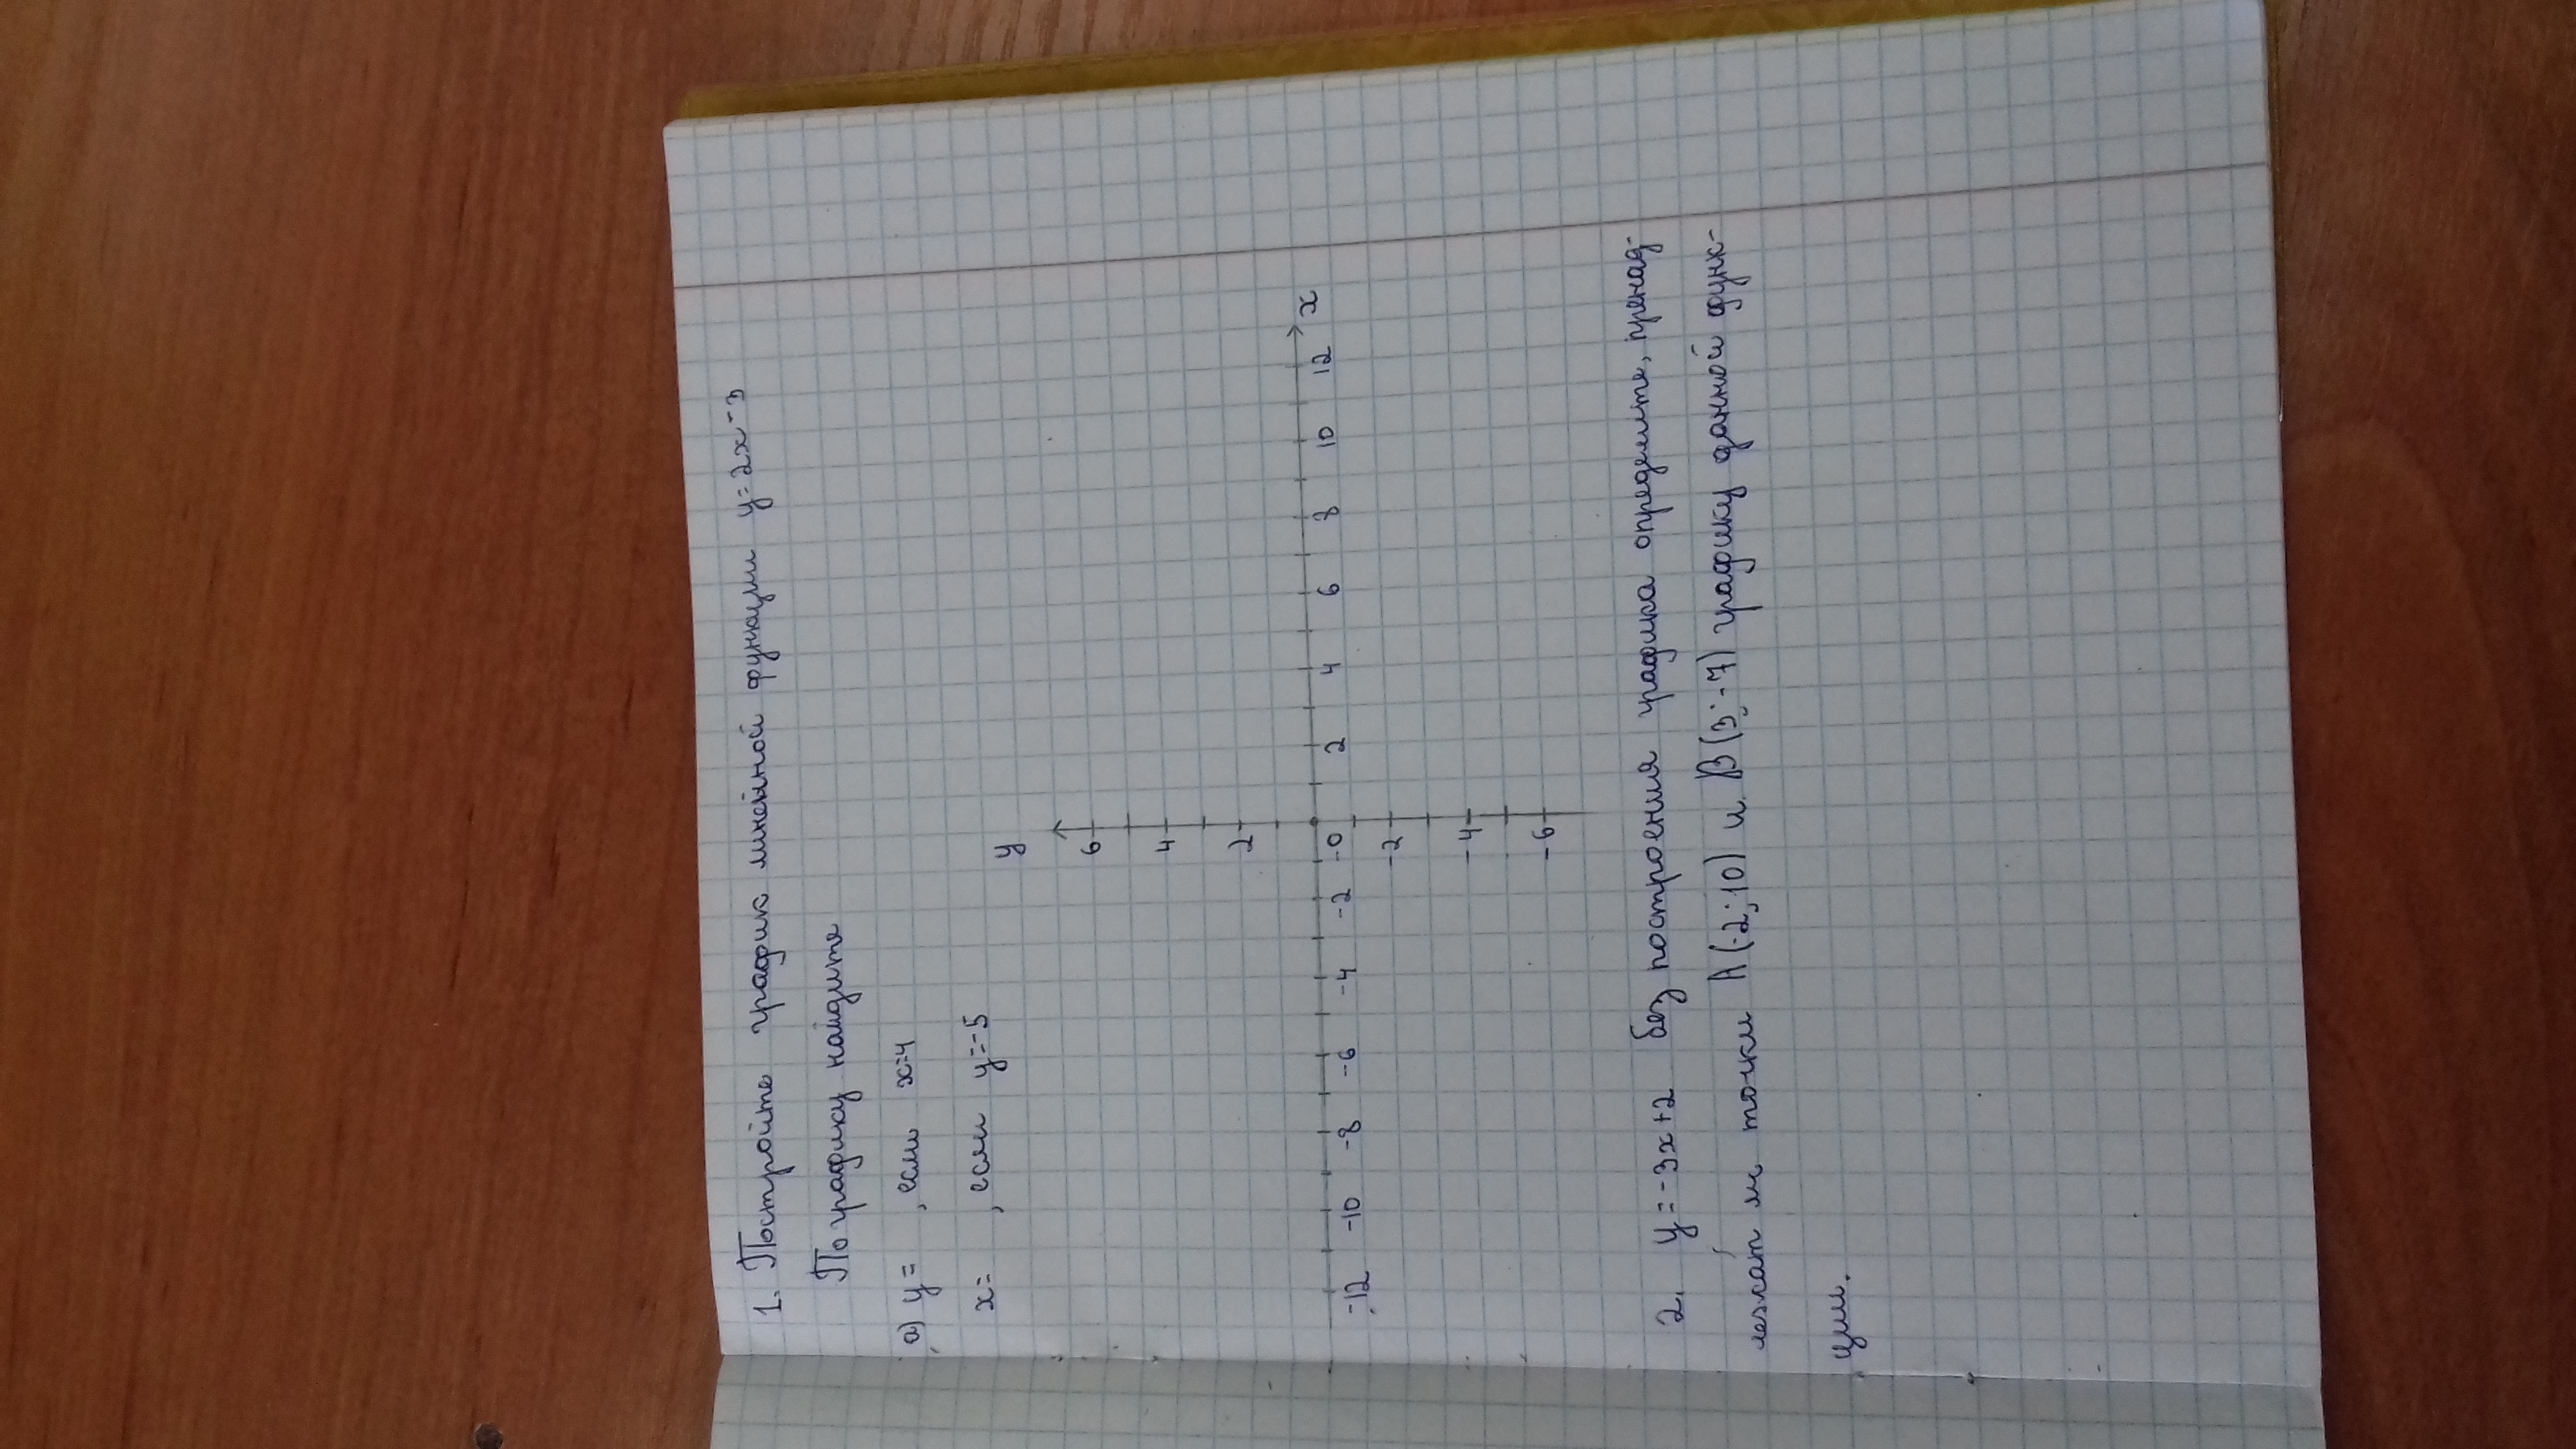 1. Постройте график линейной функции y=2x-3
По графику найдите
а) y= , если x=4
x= , если y=-5
y
6
4
2
-12 -10 -8 -6 -4 -2 -0 2 4 6 8 10 12 x
-2
-4
-6
2. y=-3x+2 без построения графика определите, пренад-
лежат ли точки A(-2;10) и B(3;-7) графику данной функ-
ции.